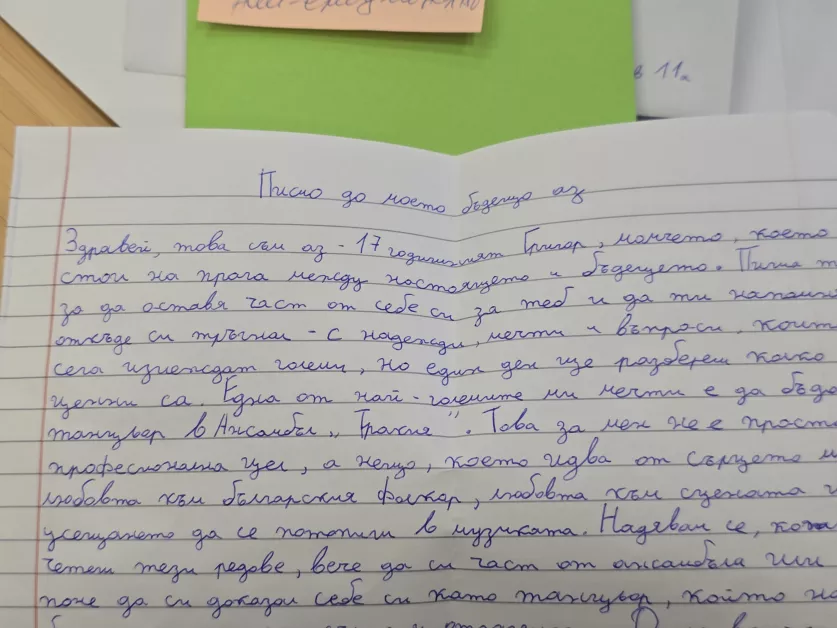 в 11а
Писмо до моето бъдещо аз
Здравей, това съм аз - 17 годишният Григор, момчето, което
стои на прага между настоящето и бъдещето. Пиша т
за да оставя част от себе си за теб и да ти напомн
откъде си тръгнал - с надежди, мечти и въпроси, коит
сега изглеждат големи, но един ден ще разбереш колко
ценни са. Една от най-големите ми мечти е да бъда
танцьор в Ансамбъл "Тракия". Това за мен не е прост
професионална цел, а нещо, което идва от сърцето м
любовта към българския фолклор, любовта към сцената и
усещането да се потопиш в музиката. Надявам се, кога
четеш тези редове, вече да си част от ансамбъла или
поне да си доказал себе си като танцьор, който на